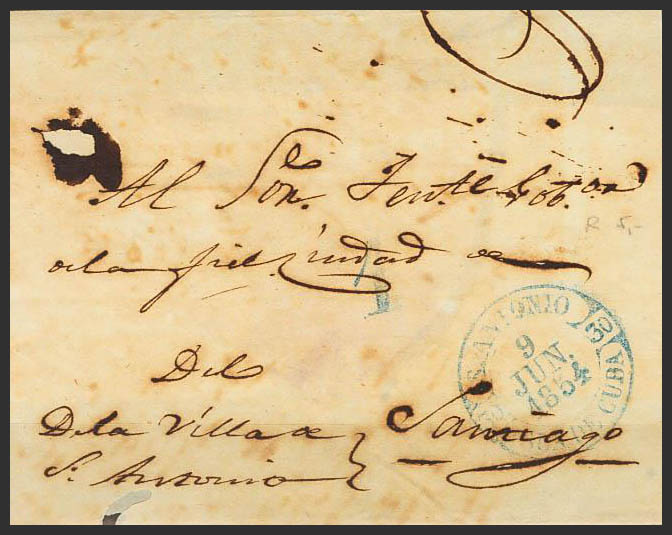 Al Sor. Tente. Gobor.
R 5,-
de la fiel ciudad de
1
S. ANTONIO
30
9
JUN.
1854
CUBA
Del
De la Villa de
Sn. Antonio
Santiago